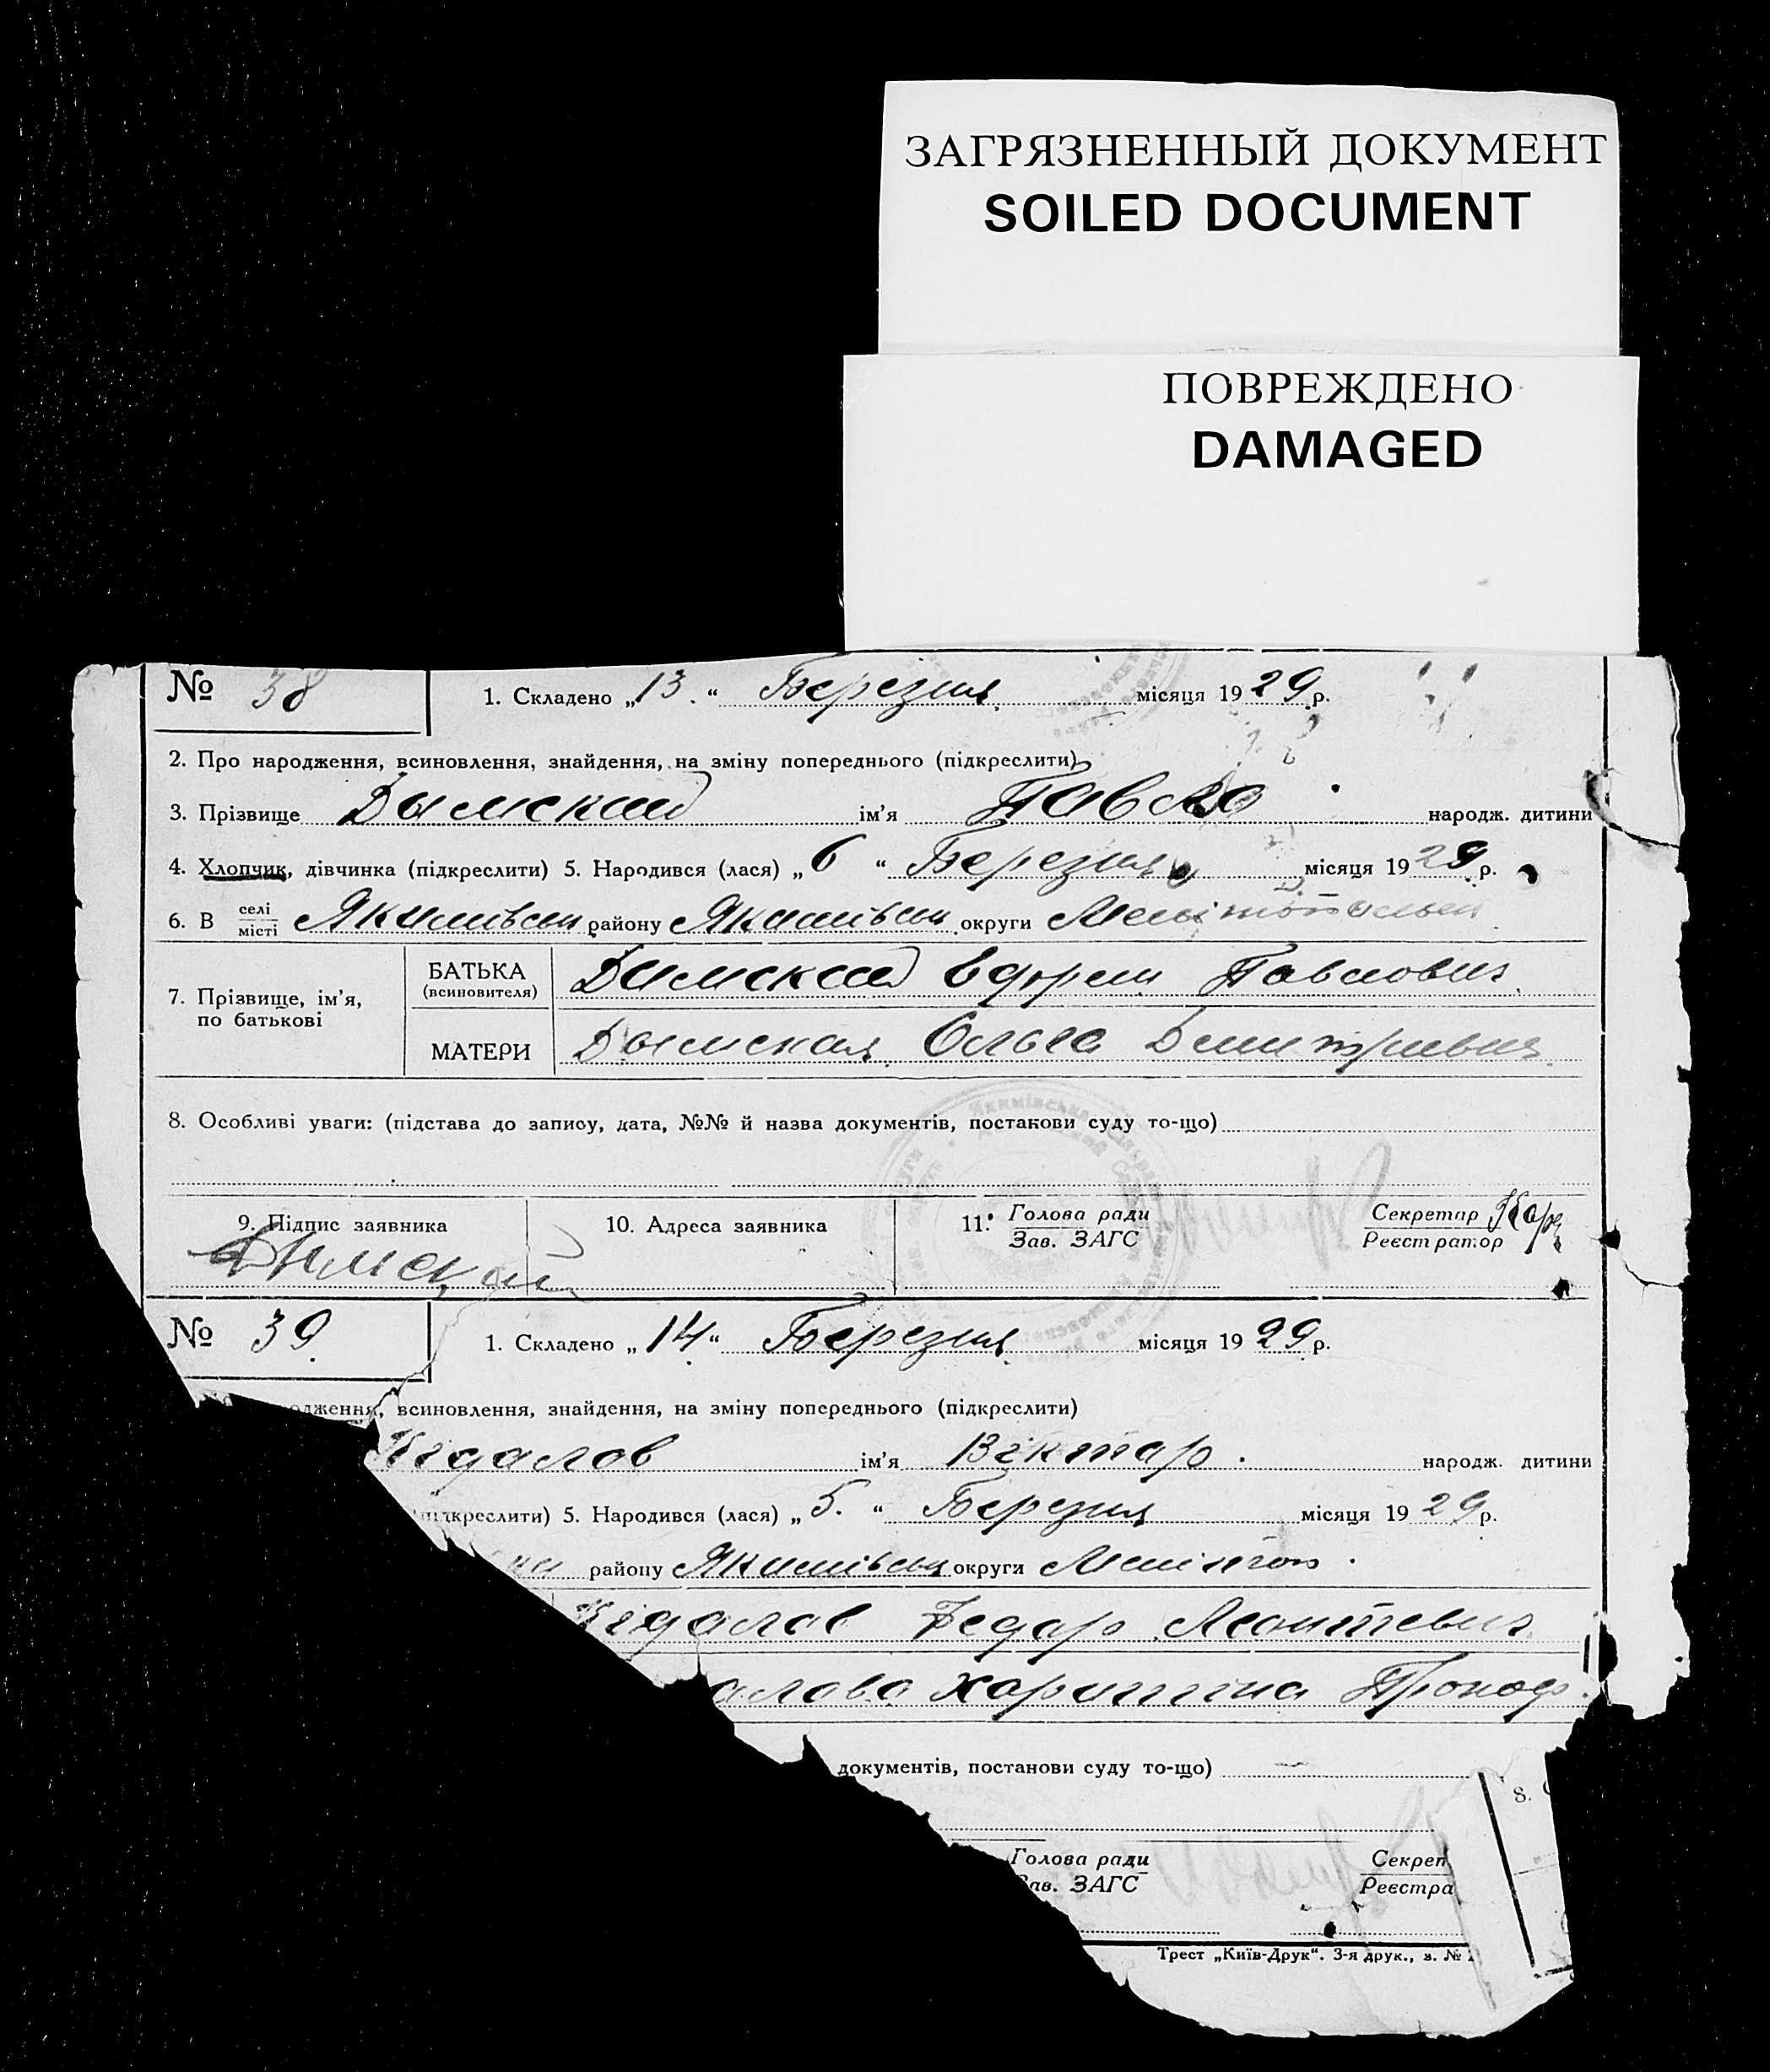 ЗАГРЯЗНЕННЫЙ ДОКУМЕНТ
SOILED DOCUMENT
ПОВРЕЖДЕНО
DAMAGED
№ 38 1. Складено „13.“ Березня місяця 1929 р.
2. Про народження, всиновлення, знайдення, на зміну попереднього (підкреслити)
3. Прізвище Дымский ім'я Павло народж. дитини
4. Хлопчик, дівчинка (підкреслити) 5. Народився (лася) „6“ Березня місяця 1929 р.
6. В селі місті Якимівськ району Якимівськ округи
7. Прізвище, ім'я, по батькові
БАТЬКА (всиновителя) Дымский Ефрем Павлович
МАТЕРИ Дымская Ольга
8. Особливі уваги: (підстава до запису, дата, №№ й назва документів, постанови суду то-що)
9. Підпис заявника 10. Адреса заявника 11. Голова ради Секретар
Зав. ЗАГС Реєстратор
Дымский
№ 39 1. Складено „14“ Березня місяця 1929 р.
одження, всиновлення, знайдення, на зміну попереднього (підкреслити)
ідалов ім'я Віктар. народж. дитини
підкреслити) 5. Народився (лася) „5.“ Березня місяця 1929 р.
району Якимівськ округи
ідалов Федар Леонтевич
алова Харитина Прокоф.
документів, постанови суду то-що)
8.
Голова ради Секрет
Зав. ЗАГС Реєстра
Трест „Київ-Друк“. 3-я друк., з. №